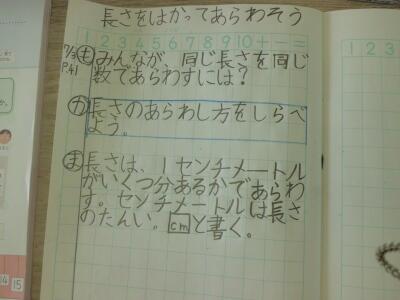 長さをはかってあらわそう
1 2 3 4 5 6 7 8 9 10 + - =
P.41
みんなが、同じ長さを同じ
数であらわすには?
カ 長さのあらわし方をしらべ
よう。
ま 長さは、1センチメートル
がいくつ分あるかであらわ
す。センチメートルは長さ
のたんい。cmと書く。
1 2 3
14 15